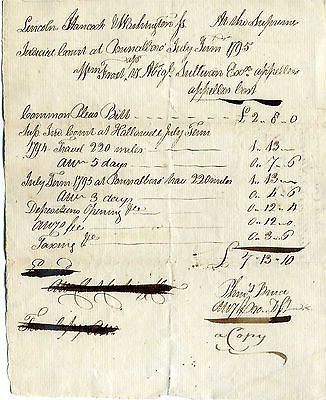 Lincoln Hancock & Washington ss At the Supreme
Judicial Court at Pownalboro July Term 1795
Appellant vs Abigl Sullivan Exx. appellee
appellees Cost
Common Pleas Bill £ 2 - 8 - 0
Sup Jud Court at Hallowell July Term
1794 Travel 220 miles 1 - 13 -
Atte 5 days 0 - 7 - 6
July Term 1795 at Pownalboro trav 220 miles 1 - 13 -
Atte 3 days 0 - 4 - 6
Depositions Opening &c 0 - 12 - 4
Attys fee 0 - 12 - 0
Taxing &c 0 - 3 - 6
£ 7 - 13 - 10
a Copy